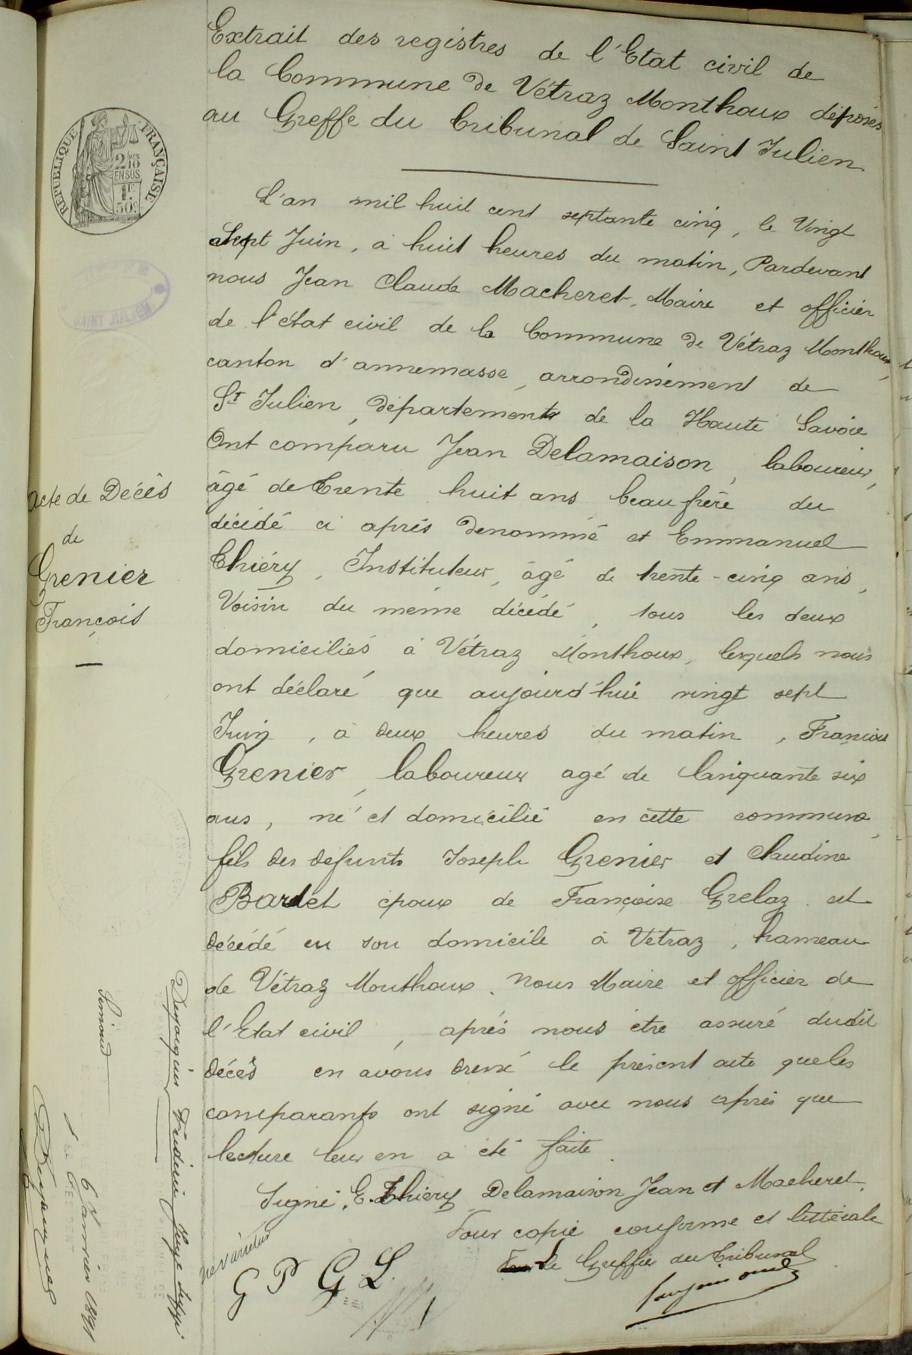 Extrait des registres de l'Etat civil de
la Commune de Vétraz Monthoux déposés
au Greffe du Tribunal de Saint Julien
RÉPUBLIQUE FRANÇAISE
2/10
EN SUS
1F
50c
SAINT JULIEN
L'an mil huit cent septante cinq, le Vingt
Sept Juin, à huit heures du matin, Pardevant
nous Jean Claude Macheret, Maire et officier
de l'état civil de la Commune de Vétraz Monthoux,
canton d'annemasse, arrondissement de
St Julien, département de la Haute Savoie
Ont comparu Jean Delamaison, laboureur,
âgé de Trente huit ans beau frère du
décédé ci après denommé et Emmanuel
Thiéry, Instituteur, âgé de trente-cinq ans,
Voisin du même décédé, tous les deux
domiciliés à Vétraz Monthoux, lesquels nous
ont déclaré que aujourd'hui vingt sept
Juin, à deux heures du matin, François
Grenier, laboureur agé de Cinquante six
ans, né et domicilié en cette commune,
fils des defunts Joseph Grenier et Claudine
Bardet époux de Françoise Grelaz est
décédé en son domicile à Vétraz, hameau
de Vétraz Monthoux. Nous Maire et officier de
l'Etat civil, après nous être assuré dudit
décès en avons dressé le présent acte que les
comparants ont signé avec nous après que
lecture leur en a été faite.
Signé: E. Thiéry Delamaison Jean et Macheret.
Pour copie conforme et littérale
Le Greffier du Tribunal
Acte de Décès
de
Grenier
François
G P G L
6 Janvier